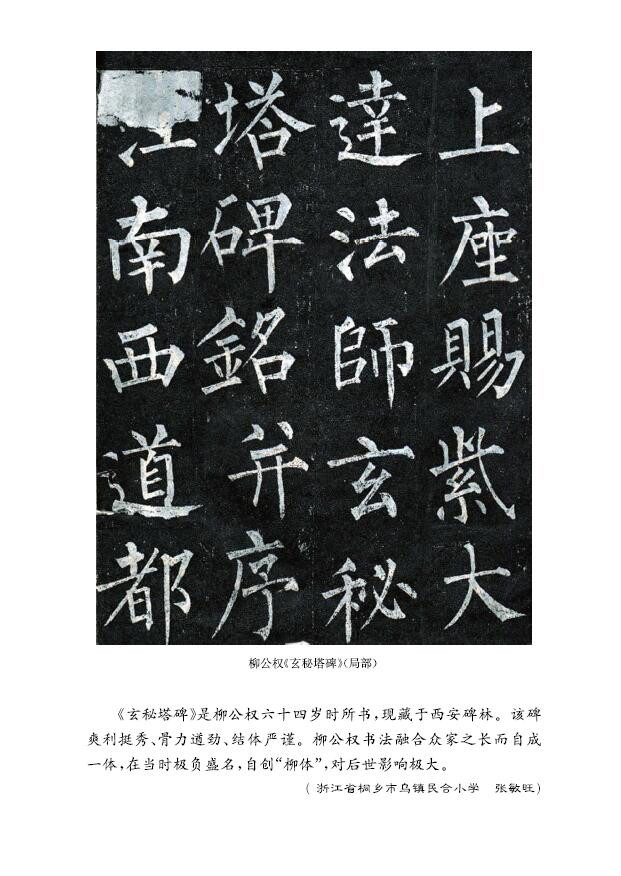 上座賜紫大
達法師玄秘
塔碑銘并序
江南西道都
柳公权《玄秘塔碑》(局部)
《玄秘塔碑》是柳公权六十四岁时所书,现藏于西安碑林。该碑
爽利挺秀、骨力遒劲、结体严谨。柳公权书法融合众家之长而自成
一体,在当时极负盛名,自创“柳体”,对后世影响极大。
(浙江省桐乡市乌镇民合小学 张敏旺)